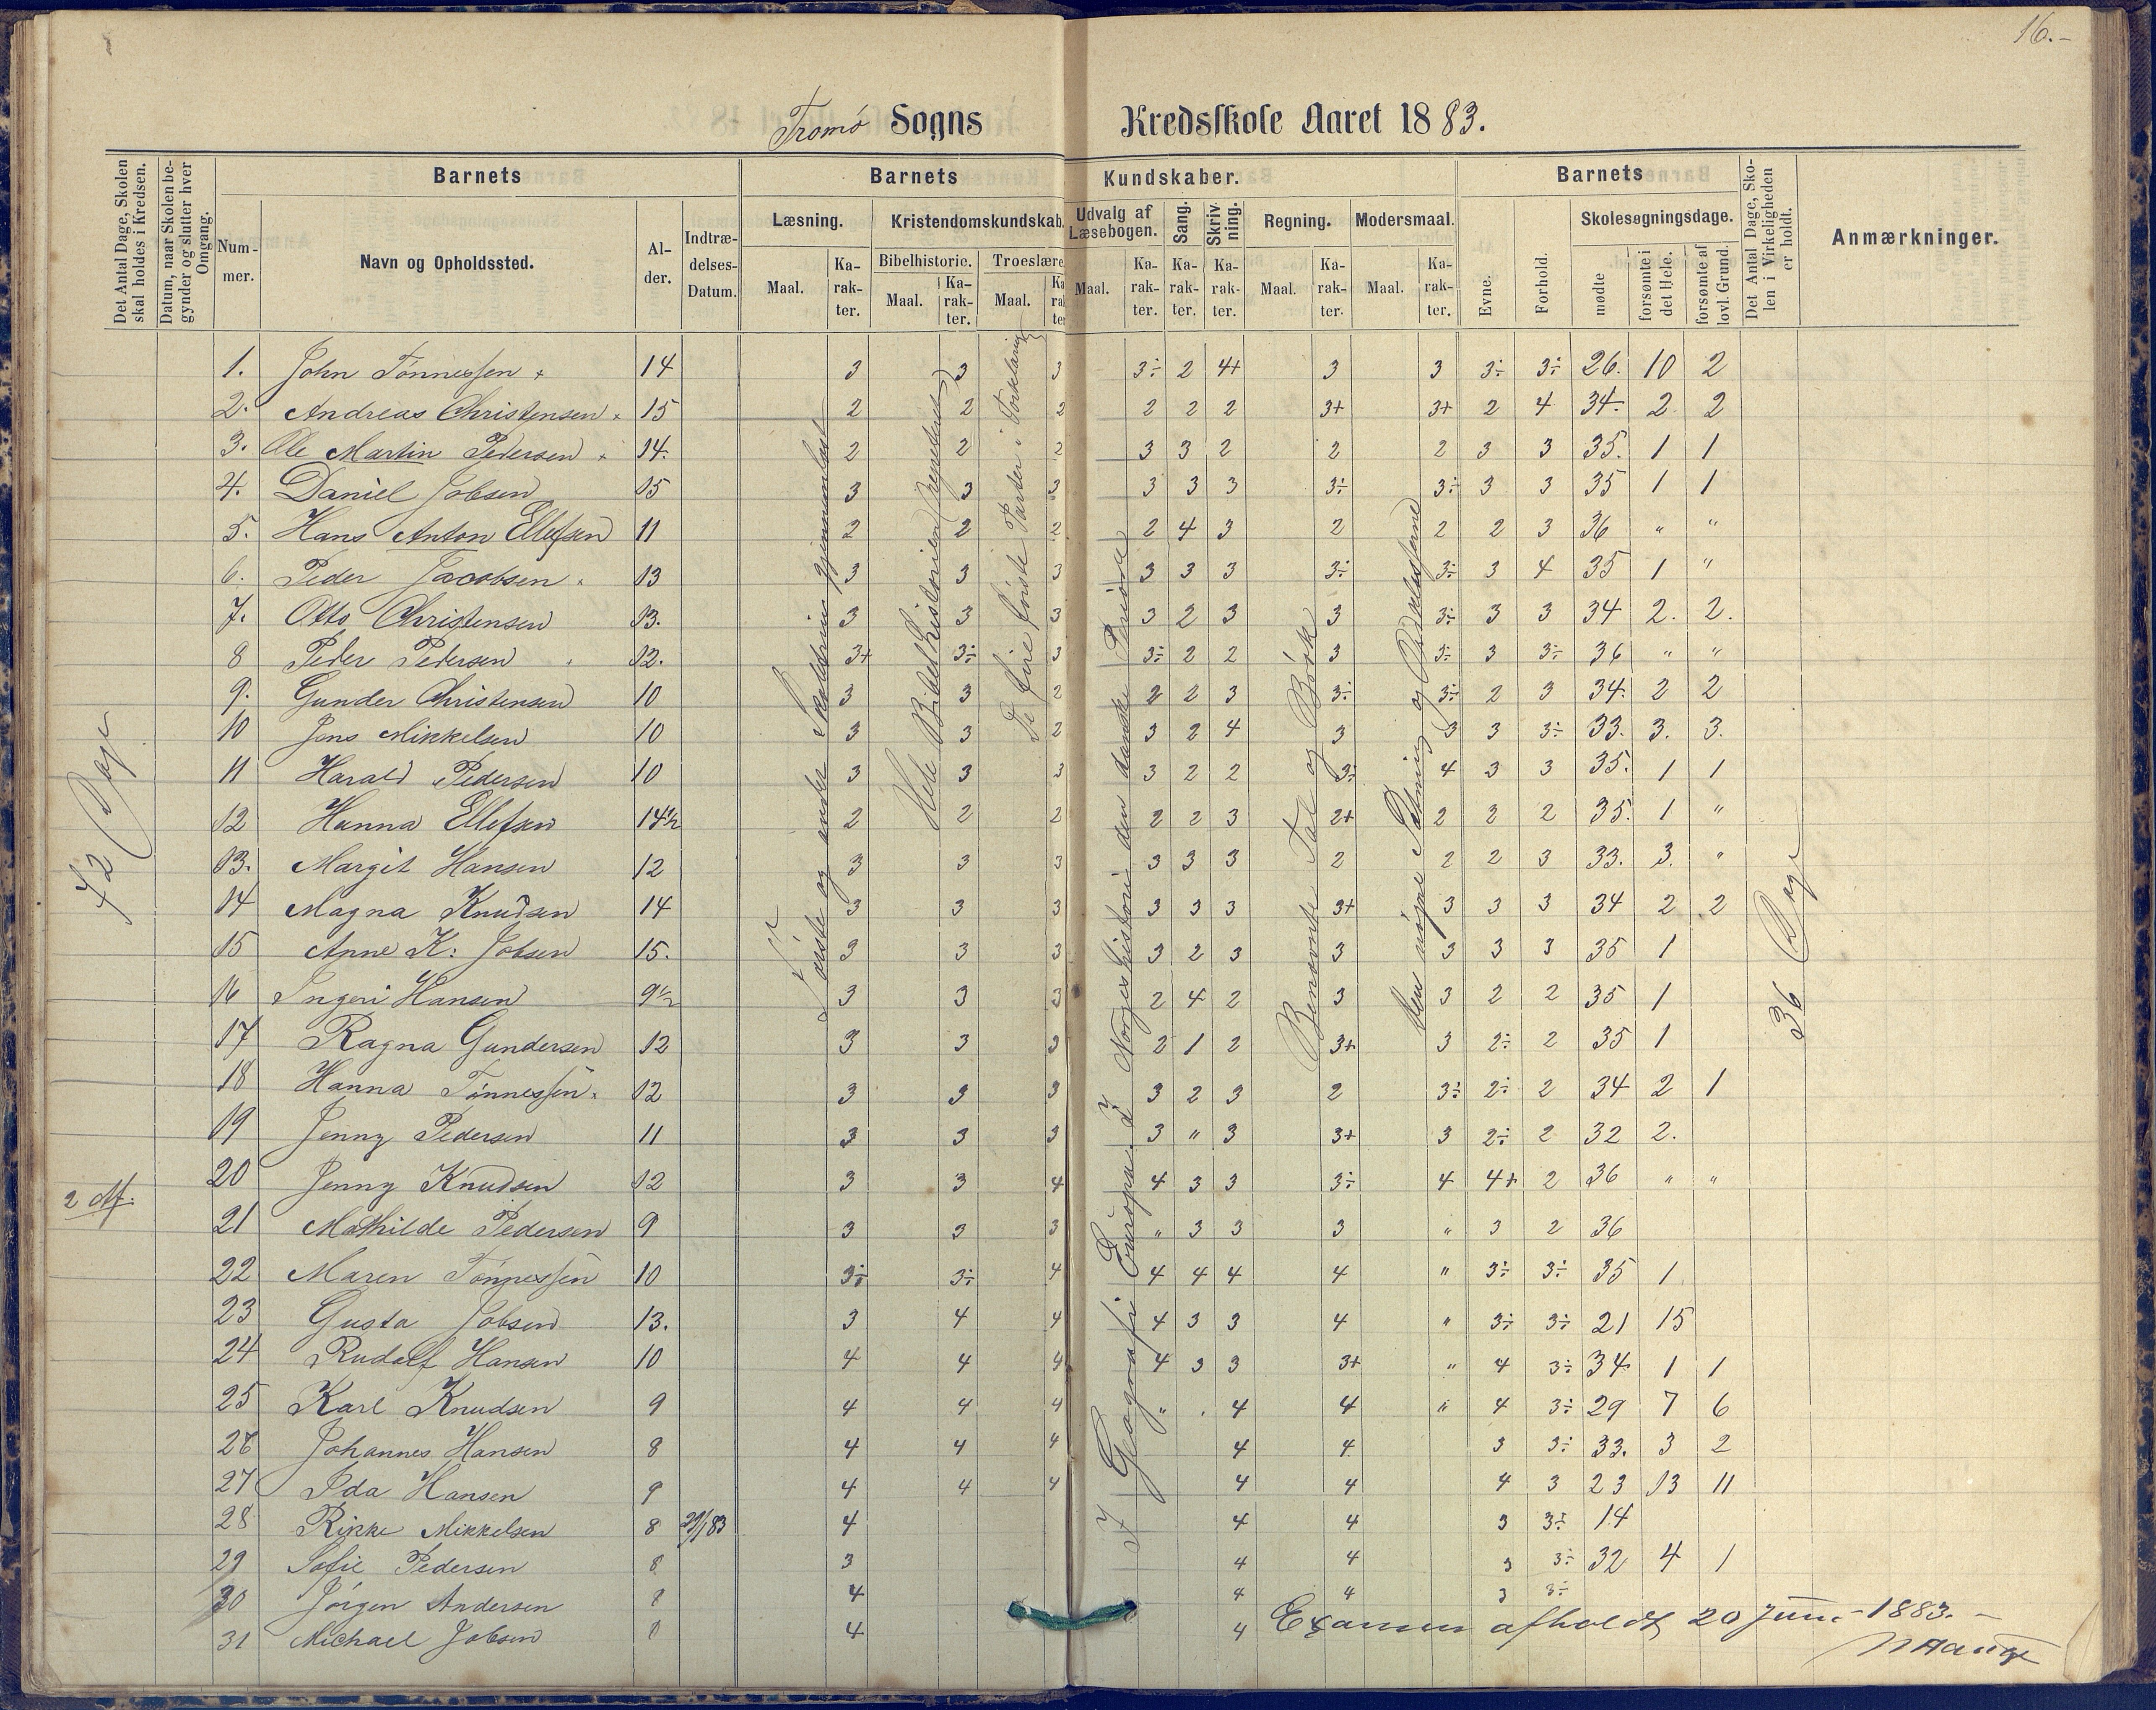 16.-
Tromø Sogns Kredsskole Aaret 1883.
Det Antal Dage, Skolen skal holdes i Kredsen.
Datum, naar Skolen begynder og slutter hver Omgang.
Barnets
Nummer.
Navn og Opholdssted.
Alder.
Indtrædelses-Datum.
Barnets Kundskaber.
Læsning.
Maal.
Karakter.
Kristendomskundskab.
Bibelhistorie.
Maal.
Karakter.
Troeslære
Maal.
Karakter
Udvalg af Læsebogen.
Maal.
Karakter.
Sang.
Karakter.
Skrivning.
Karakter.
Regning.
Maal.
Karakter.
Modersmaal.
Maal.
Karakter.
Barnets
Evne.
Forhold.
Skolesøgningsdage.
mødte
forsømte i det Hele.
forsømte af lovl. Grund.
Det Antal Dage, Skolen i Virkeligheden er holdt.
Anmærkninger.
1. John Tønnessen + 14 3 3 3 3÷ 2 4+ 3 3 3÷ 3÷ 26. 10 2
2. Andreas Christensen 15 2 2 2 2 2 2 3+ 3+ 2 4 34. 2 2
3. Ole Martin Pedersen 14. 2 2 2 3 3 2 2 2 3 3 35. 1 1
4. Daniel Jobsen 15 3 3 3 3 3 3 3÷ 3÷ 3 3 35 1 1
5. Hans Anton Ellefsen 11 2 2 2 2 4 3 2 2 2 3 36 " "
6. Peder Jacobsen 13 3 3 3 3 3 3 3÷ 3÷ 3 4 35 1 "
7. Otto Christensen 13. 3 3 3 3 2 3 3 3÷ 3 3 34 2. 2.
8 Peder Pedersen 12. 3+ 3÷ 3 3÷ 2 2 3 3÷ 3 3÷ 36 " "
9. Gunder Christensen 10 3 3 2 2 2 3 3÷ 3÷ 2 3 34. 2 2
10 Jens Mikkelsen 10 3 3 2 3 2 4 3 3 3 3÷ 33. 3. 3.
11 Harald Pedersen 10 3 3 3 3 2 2 3÷ 4 3 3 35. 1 1
12 Hanna Ellefsen 14½ 2 2 2 2 2 3 2+ 2 2 2 35. 1 "
13. Margit Hansen 12 3 3 3 3 3 3 2 2 2 3 33. 3. "
14 Magna Knudsen 14 3 3 3 3 3 3 3+ 3 3 3 34 2 2
15 Anne K: Jobsen 15. 3 3 3 3 2 3 3 3 3 3 35 1
16 Ingeri Hansen 9½ 3 3 3 2 4 2 3 3 2 2 35 1
17 Ragna Gundersen 12 3 3 3 2 1 2 3+ 3 2÷ 2 35 1
18 Hanna Tønnessen 12 3 3 3 3 2 3 2 3÷ 2÷ 2 34 2 1
19 Jenny Pedersen 11 3 3 3 3 " 3 3+ 3 2÷ 2 32 2.
20 Jenny Knudsen 12 3 3 4 4 3 3 3÷ 4 4+ 2 36 " "
21 Mathilde Pedersen 9 3 3 3 " 3 3 3 " 3 2 36
22 Maren Tønnessen 10 3÷ 3÷ 4 4 4 4 4 " 3÷ 3÷ 35 1
23 Gusta Jobsen 13. 3 4 4 4 3 3 4 " 3÷ 3÷ 21 15
24 Rudolf Hansen 10 4 4 4 4 3 3 3+ " 4 3÷ 34 1 1
25 Karl Knudsen 9 4 4 4 " . 4 4 " 4 3÷ 29 7 6
26 Johannes Hansen 8 4 4 4 4 4 3 3÷ 33. 3 2
27 Ida Hansen 9 4 4 4 4 4 4 3 23 13 11
28 Rikke Mikkelsen 8 29/1 83 4 4 4 3 3÷ 14
29 Sofie Pedersen 8 3 4 4 3 3÷ 32 4 1
30 Jörgen Andersen 8 4 4 4 3 3÷
31 Michael Jobsen 8 4 4
72 Dage
2 Af.
Første og andet Skoletrin gjennemlæst
Hele Bibelhistorien (repeteret)
De fire første Parter i Forklaring
I Geografi Europa. I Norgeshistorie den danske Periode
Benævnte Tal og Brøk
Den nøgne Sætning og
36 Dage
Examen afholdt 20 Juni - 1883. -
Hauge